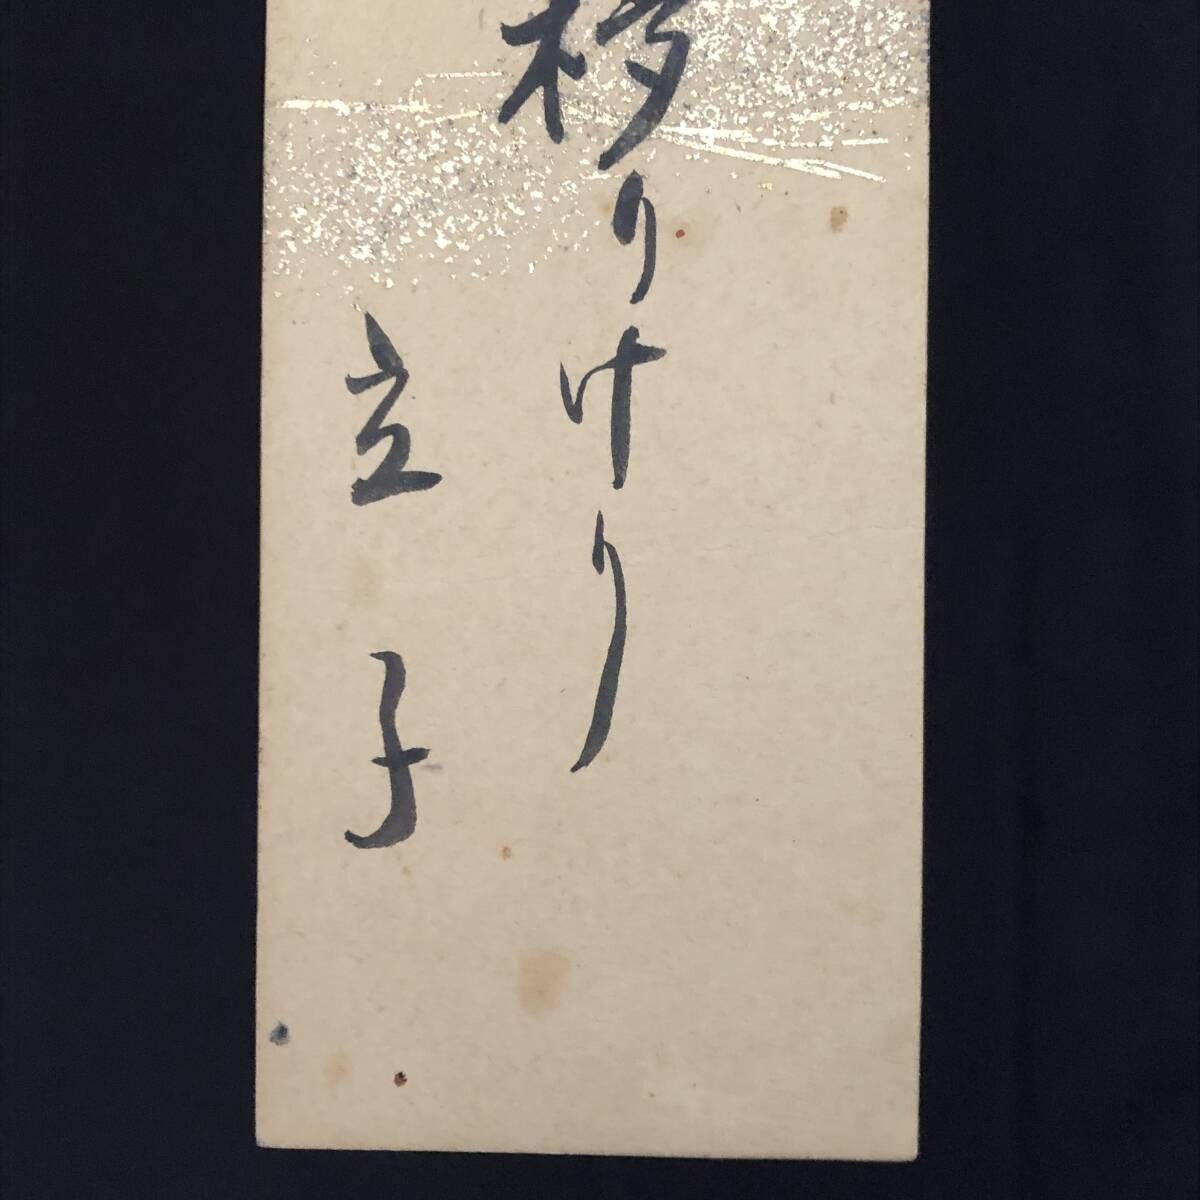 移りけり
立子